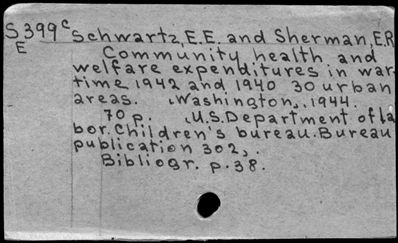 S399c Schwartz, E.E. and Sherman, E.R.
E
Community health and
welfare expenditures in war-
time 1942 and 1940 30 urban
areas. Washington, 1944.
70 p. U.S. Department of la
bor. Children's bureau. Bureau
publication 302,.
Bibliogr. p. 38.